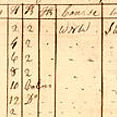 H K Fth Course
2 2 WNW
4 2
6 2
8 2
10 Calm
12 Do